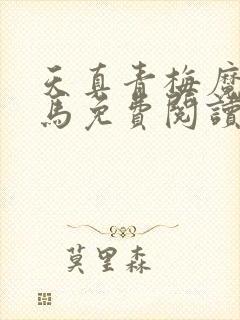 天真青梅魔
馬免費閱讀
莫里森